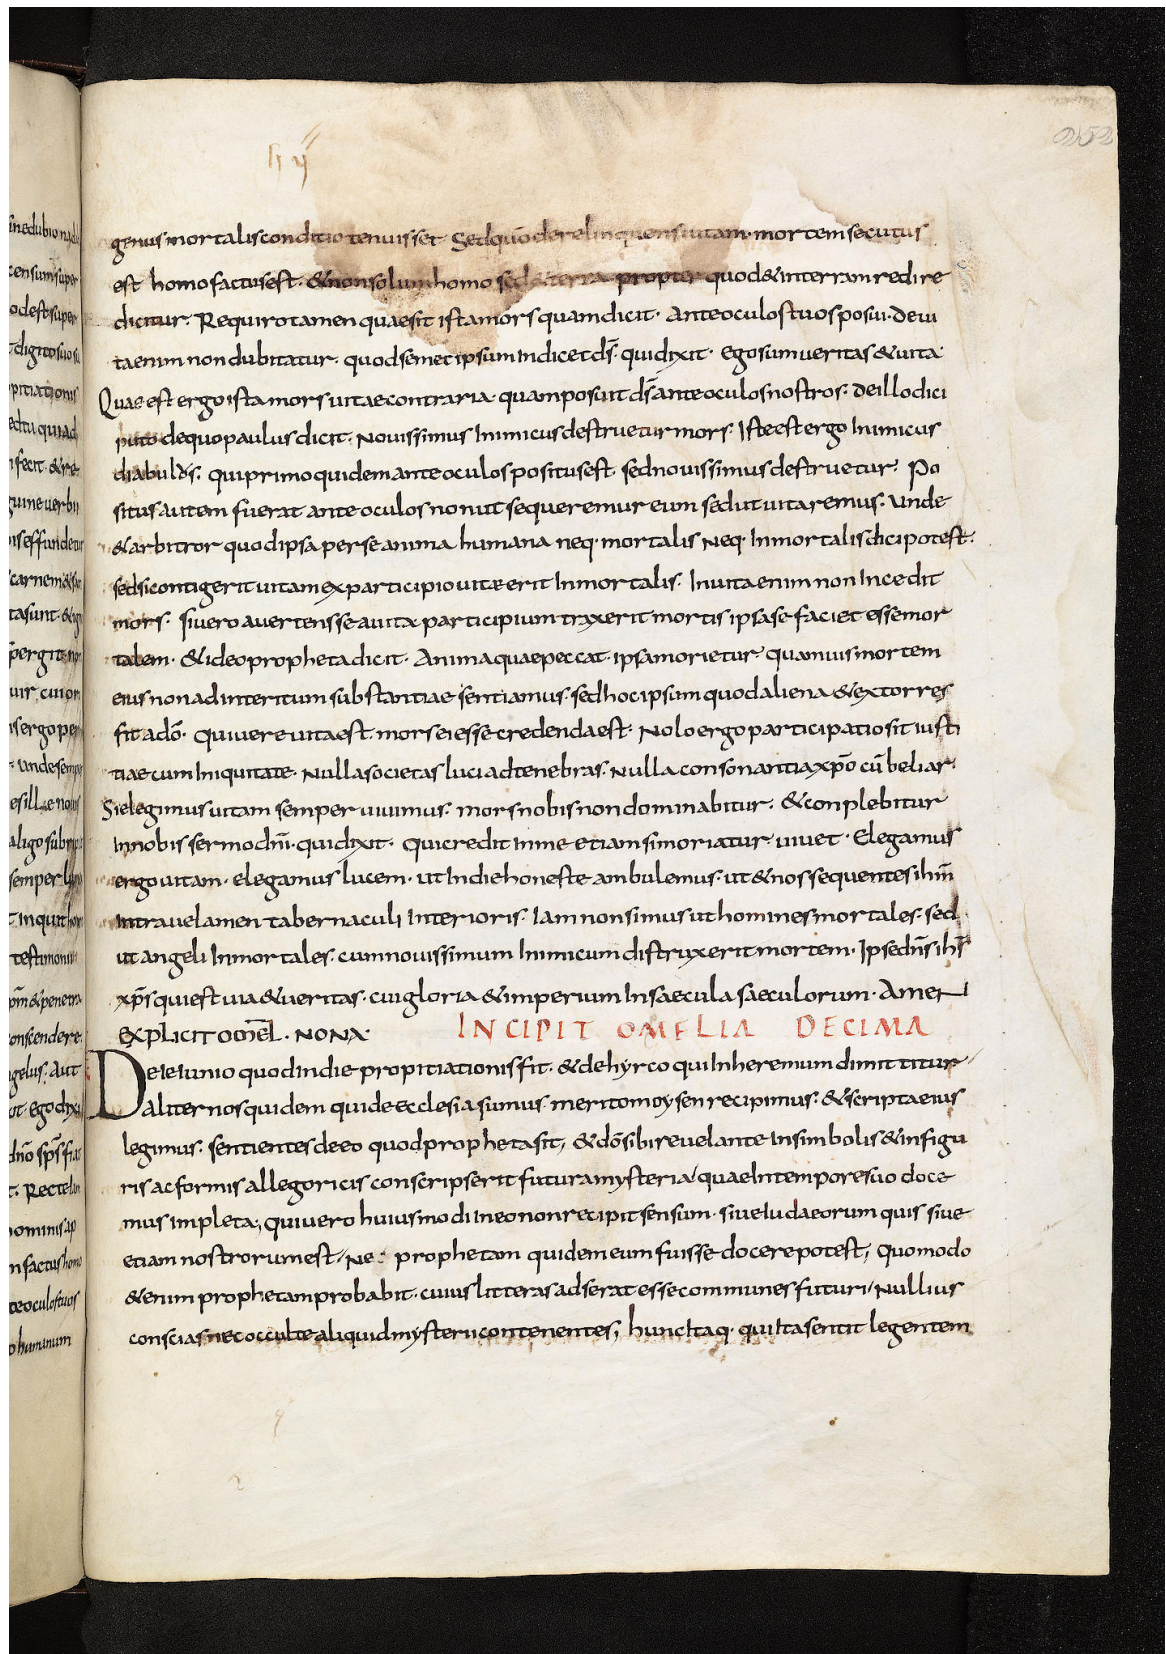 252
genus mortalis conditio tenuisset. Sed quõ derelinquens uitam. mortem secutus
est homo factus est. & non solum homo sed & terra propter quod & in terram redire
dicitur. Requiro tamen quae sit ista mors quam dicit. Ante oculos tuos posui. De ui
ta enim non dubitatur. quod semet ipsum indicet ds̄. qui dixit. Ego sum ueritas & uita.
Quae est ergo ista mors uitae contraria. quam posuit ds̄ ante oculos nostros. de illo dici
puto de quo paulus dicit. Nouissimus inimicus destruetur mors. Iste est ergo inimicus
diabulos. qui primo quidem ante oculos positus est. sed nouissimus destruetur. Po
situs autem fuerat ante oculos non ut sequeremur eum sed ut uitaremus. Unde
& arbitror quod ipsa per se anima humana neq· mortalis neq· inmortalis dici potest.
sed si contigerit uitam ex participio uitae erit inmortalis. In uita enim non incedit
mors. si uero auertens se a uita participium traxerit mortis ipsa se faciet esse mor
talem. & ideo propheta dicit. Anima quae peccat. ipsa morietur quamuis mortem
eius non ad interitum substantiae sentiamus. sed hoc ipsum quod aliena & extorres
fit a dõ. qui uere uita est. mors ei esse credenda est. Nolo ergo participatio sit iusti
tiae cum iniquitate. Nulla societas luci ad tenebras. Nulla consonantia xp̄o cū beliar.
Si elegimus uitam semper uiuimus. mors nobis non dominabitur. & conplebitur
in nobis sermo dn̄i. qui dixit. Qui credit in me etiam si moriatur uiuet. Elegamus
ergo uitam. elegamus lucem. ut in die honeste ambulemus. ut & nos sequentes ihm̄
intra uelamen tabernaculi interioris. Iam non simus ut homines mortales. sed
ut angeli inmortales. cum nouissimum inimicum distruxerit mortem. Ipse dn̄s ihs̄
xp̄s qui est uia & ueritas. cui gloria & imperium in saecula saeculorum. Amen
EXPLICIT OMEL̄. NONA. INCIPIT OMELIA DECIMA
De ieiunio quod in die propitiationis fit. & de hyrco qui in heremum dimittitur
Daliter nos quidem qui de ecclesia sumus. merito moysen recipimus. & scripta eius
legimus. sentientes de eo quod propheta sit, & dõ sibi reuelante in simbolis & in figu
ris ac formis allegoricis conscripserit futura mysteria quae in tempore suo doce
mus impleta, qui uero huiusmodi in eo non recipit sensum. siue Iudaeorum quis siue
etiam nostrorum est, ne: prophetam quidem eum fuisse docere potest, quomodo
& enim prophetam probabit. cuius litteras adserat esse communes futuri Nullius
conscias nec occulte aliquid mysterii contenentes, hunc itaq· qui ita sentit legentem